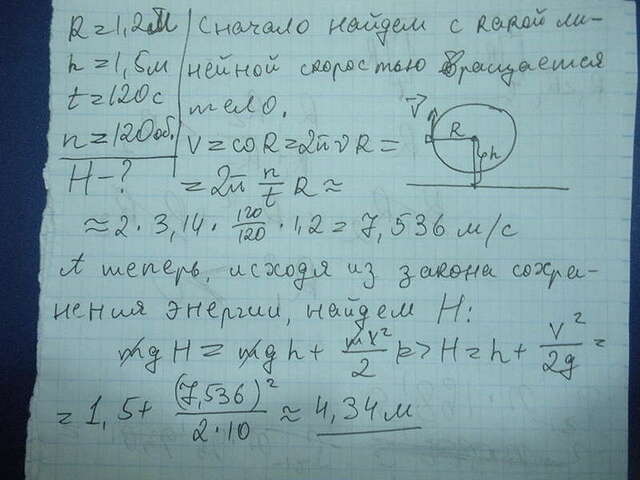 R=1,2м
h=1,5м
t=120с
n=120об.
H-?
Сначало найдем с какой ли-
нейной скоростью вращается
тело.
V=ωR=2πνR=
=2π n/t R≈
V⃗
R
h
≈2·3,14·120/120·1,2=7,536 м/с
А теперь, исходя из закона сохра-
нения энергии, найдем H:
mgH=mgh+mV²/2 => H=h+V²/2g=
=1,5+(7,536)²/2·10≈4,34м